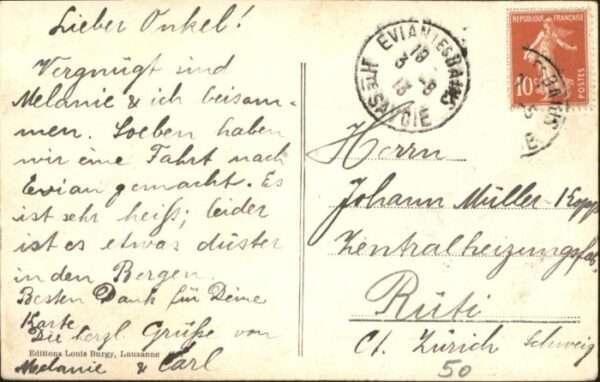 Lieber Onkel!
Vergnügt sind
Melanie & ich beisam-
men. Soeben haben
wir eine Fahrt nach
Evian gemacht. Es
ist sehr heiß; leider
ist es etwas düster
in den Bergen.
Besten Dank für Deine
Karte
Die herzl. Grüße von
Editions Louis Burgy, Lausanne
Melanie & Carl
EVIAN LES BAINS
HTE SAVOIE
REPUBLIQUE FRANÇAISE
10c
POSTES
Herrn
Johann Müller-Kopp
Zentralheizungsfab.
Rüti
Ct. Zürich Schweiz
50